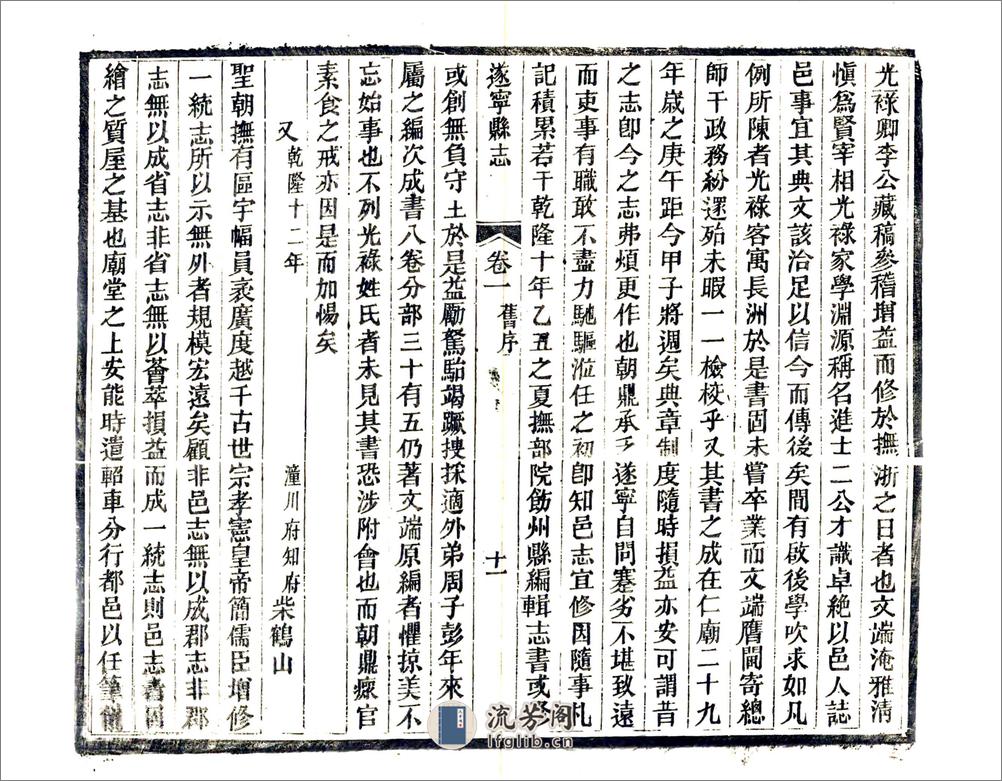 光祿卿李公藏稿參稽增益而修於撫浙之日者也文端淹雅清
愼爲賢宰相光祿家學淵源稱名進士二公才識卓絶以邑人誌
邑事宜其典文該洽足以信今而傳後矣間有啟後學吹求如凡
例所陳者光祿客寓長洲於是書固未嘗卒業而文端膺閫寄總
師干政務紛遝殆未暇一一檢校乎又其書之成在仁廟二十九
年歲之庚午距今甲子將週矣典章制度隨時損益亦安可謂昔
之志卽今之志弗煩更作也朝鼎承乏遂寧自問蹇劣不堪致遠
而吏事有職敢不盡力馳驅涖任之初卽知邑志宜修因隨事札
記積累若干乾隆十年乙丑之夏撫部院飭州縣編輯志書或修
遂寧縣志
卷一
舊序
十一
或創無負守土於是益勵駑駘竭蹶搜採適外弟周子彭年來
屬之編次成書八卷分部三十有五仍著文端原編者懼掠美不
忘始事也不列光祿姓氏者未見其書恐涉附會也而朝鼎瘝官
素食之戒亦因是而加惕矣
又 乾隆十二年 潼川府知府柴鶴山
聖朝撫有區宇幅員袤廣度越千古世宗孝憲皇帝簡儒臣增修
一統志所以示無外者規模宏遠矣顧非邑志無以成郡志非郡
志無以成省志非省志無以薈萃損益而成一統志則邑志者固
繪之質屋之基也廟堂之上安能時遣軺車分行都邑以任筆
流芳閣
lfglib.cn